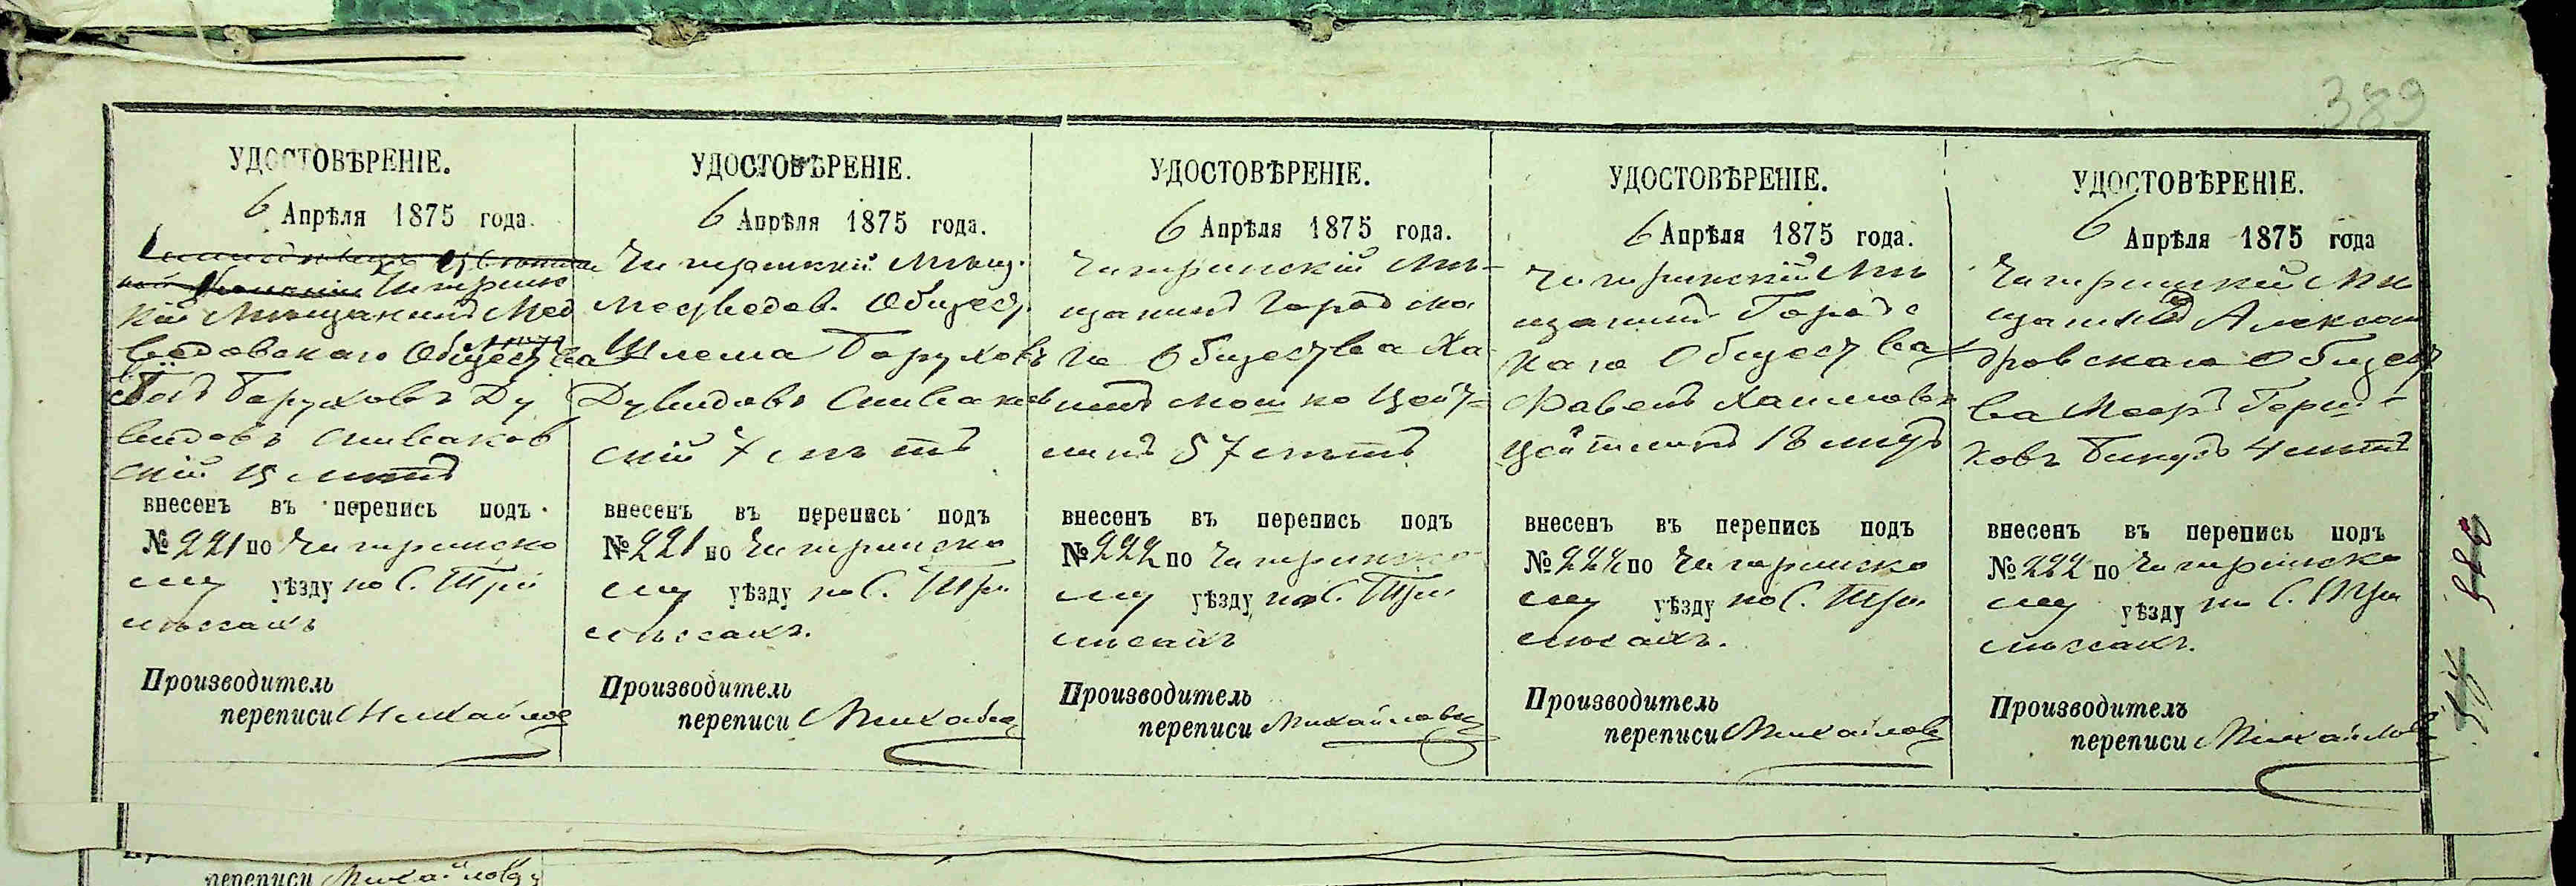 389
УДОСТОВѢРЕНІЕ.
6 Апрѣля 1875 года.
Чигринс
кій Мѣщанинъ Мед
ведовскаго Общества
Баруховъ Ду
видовъ Спиваков
скій 15 лѣтъ
внесенъ въ перепись подъ
№ 221 по Чигринско
му уѣзду по С. Трі
лѣссахъ
Производитель
переписи Михайлов
УДОСТОВѢРЕНІЕ.
6 Апрѣля 1875 года.
Чигринскій Мѣщ.
Медведов. Общест.
Шлема Баруховъ
Дувидовъ Спиваков
скій 7 лѣтъ
внесенъ въ перепись подъ
№ 221 по Чигринско
му уѣзду по С. Три
лѣссахъ.
Производитель
переписи Михайлов
УДОСТОВѢРЕНІЕ.
6 Апрѣля 1875 года.
Чигринскій Мѣ-
щанинъ Городска
го Общества Ха
имъ Мошко Цейт-
линъ 57 лѣтъ
внесенъ въ перепись подъ
№ 222 по Чигринско
му уѣзду по С. Три
лѣсахъ
Производитель
переписи Михайловъ
УДОСТОВѢРЕНІЕ.
6 Апрѣля 1875 года.
Чигринскій Мѣ
щанинъ Городс
каго Общества
Файвель Хаимовъ
Цейтлинъ 18 лѣтъ
внесенъ въ перепись подъ
№ 222 по Чигринско
му уѣзду по С. Три
лѣсахъ.
Производитель
переписи Михайловъ
УДОСТОВѢРЕНІЕ.
6 Апрѣля 1875 года
Чигринскій Мѣ
щанинъ Алексан
дровскаго Общест
ва Мееръ Герш-
ковъ 4 лѣтъ
внесенъ въ перепись подъ
№ 222 по Чигринско
му уѣзду по С. Три
лѣссахъ.
Производитель
переписи Михайловъ
переписи Михайловъ